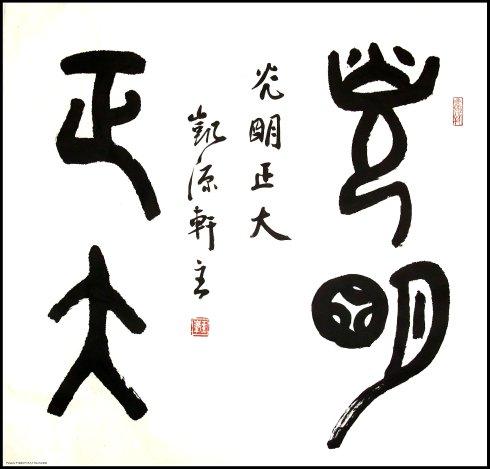 光明
正大
光明正大
凱源軒主